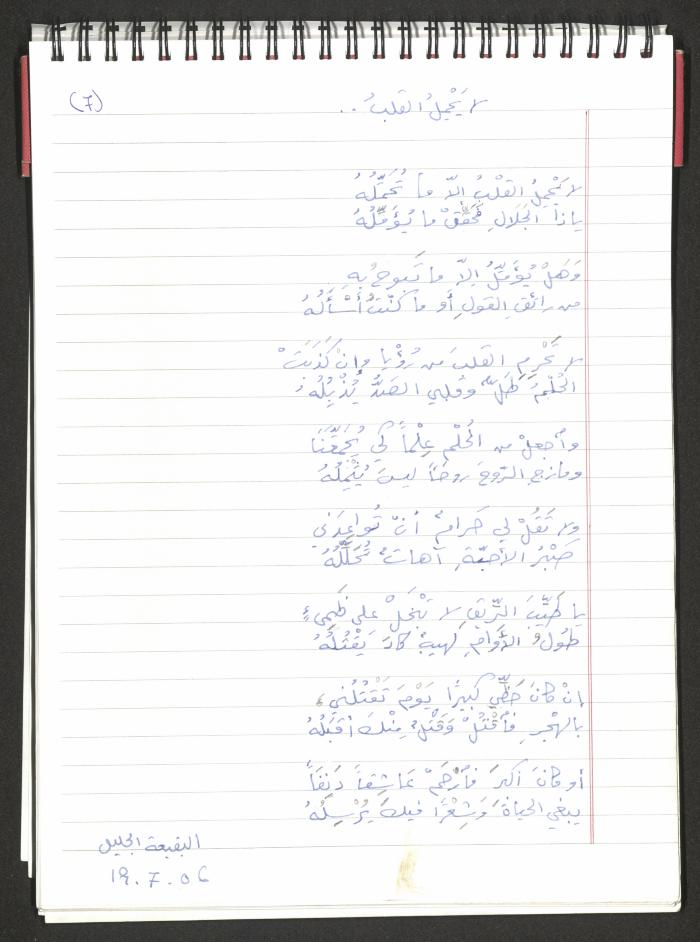 (7)
لا يَحْمِلُ القلبُ ..
لا يَحْمِلُ القلْبُ إلاّ ما تُحَمِّلُهُ
ياذا الجَلالِ فَحَقِّقْ ما يُؤَمِّلُهُ
وَهَلْ يُؤَمِّلُ إلاّ ما تَبوحُ بِهِ
من رائقِ القولِ أو ما كُنْتُ أَسْأَلُهُ
لا تَحْرِمِ القلبَ من رُؤْيا وإنْ كَذَبَتْ
الحُلْمُ طَلٌّ وقلبي الصَدُّ يُذْبِلُهُ
وأجعلْ من الحُلْمِ عِلْماً كي يُجَمِّعَنَا
ومازجِ الرّوحَ روحاً ليسَ
ولا تَقُلْ لي حَرامٌ أنْ تُواعِدَني
صَبْرُ الأحبّةِ آهاتٌ تُحَلِّلُهُ
يا طَيِّبَ الرِّيقِ لا تَبْخَلْ على ظَمِىءٍ
طُولُ الأُوامِ لهيبٌ كادَ يَقْتُلُهُ
إنْ كانَ حَظّي كبيرًا يَوْمَ تَقْتُلُني
بالهَجْرِ فأقْتُلْ وَقَتْلٌ مِنْكَ أقبَلُهُ
أو كانَ أكبرَ فأرْحَمْ عَاشِقاً دَنِفَاً
يبغي الحياةَ وَشِعْرًا فيكَ يُرْسِلُهُ
البقيعة الجليل
19.7.06